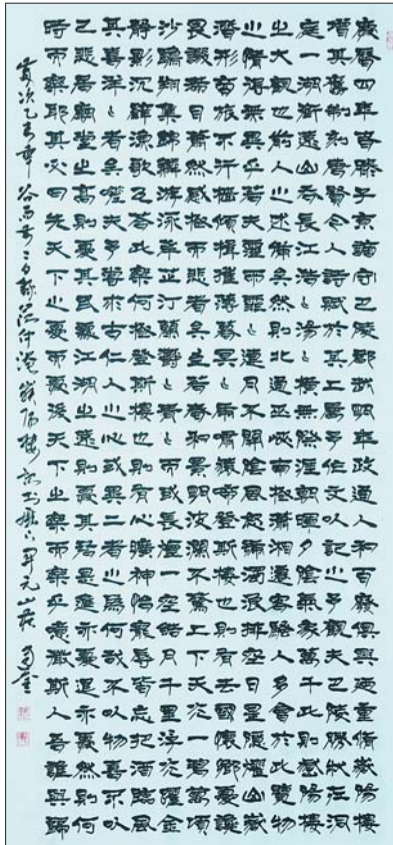 慶曆四年春滕子京謫守巴陵郡越明年政通人和百廢俱興迺重脩嶽陽樓
增其舊制刻唐賢今人詩賦於其上屬予作文以記之予觀夫巴陵勝狀在洞
庭一湖銜遠山吞長江浩〻湯〻橫無際涯朝暉夕陰氣象萬千此則嶽陽樓
之大觀也前人之述備矣然則北通巫峽南極瀟湘遷客騷人多會於此覽物
之情得無異乎若夫霪雨霏〻連月不開陰風怒號濁浪排空日星隱燿山嶽
潛形商旅不行檣傾楫摧薄暮冥〻虎嘯猿啼登斯樓也則有去國懷鄉憂讒
畏譏滿目蕭然感極而悲者矣至若春和景明波瀾不驚上下天光一碧萬頃
沙鷗翔集錦鱗游泳岸芷汀蘭鬱〻青〻而或長煙一空皓月千里浮光躍金
靜影沉璧漁歌互答此樂何極登斯樓也則有心曠神怡寵辱皆忘把酒臨風
其喜洋〻者矣嗟夫予嘗求古仁人之心或異二者之為何哉不以物喜不以
己悲居廟堂之高則憂其民處江湖之遠則憂其君是進亦憂退亦憂然則何
時而樂耶其必曰先天下之憂而憂後天下之樂而樂乎噫微斯人吾誰與歸
歲次乙酉年谷雨 范仲淹嶽陽樓記 山莊